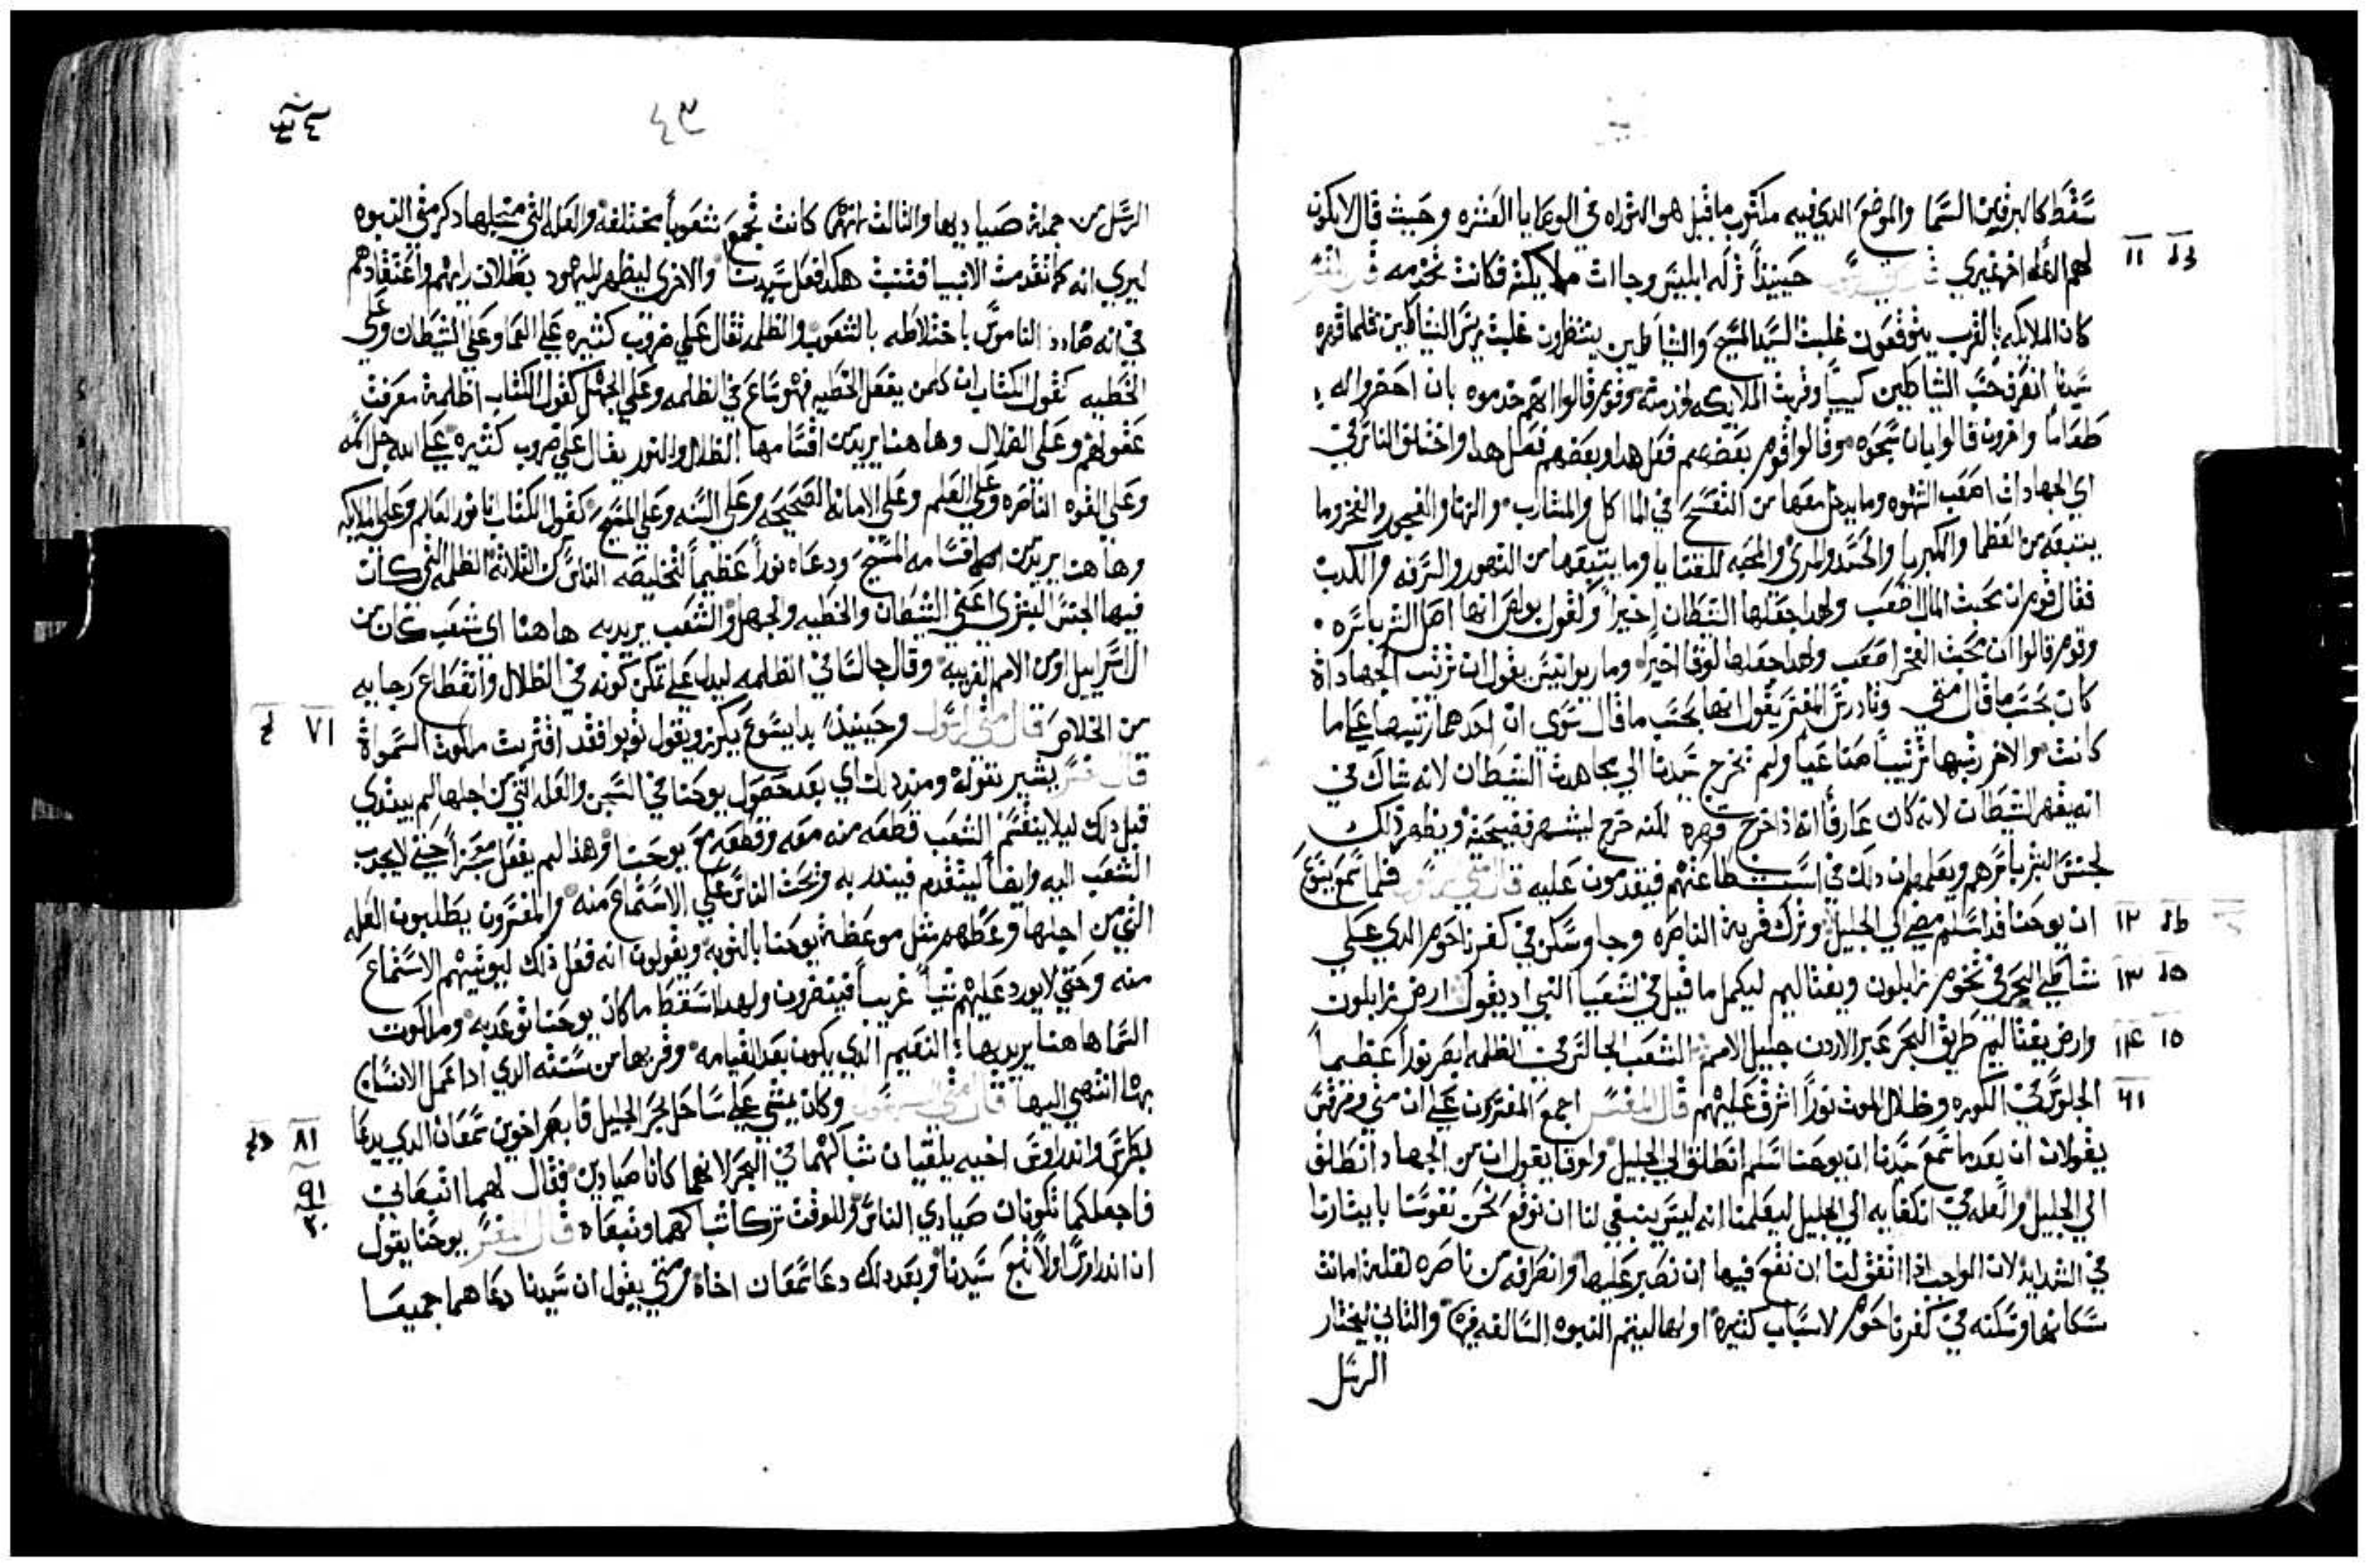 سقط كالبرق من السما والموضع الدي فيه مكتوب ما قيل هو التوراه في الوصايا العشره وحيث قال لا يكون
لهم اله اخر غيري حينيذاً تركه ابليس وجاات ملايكته فكانت تخدمه قال المفسر
١١
كان الملايكه بالقرب يتوقعون غلبت السيد المسيح والشياطين ينتظرون غلبت ريس الشياطين فلما قهره
سيدنا انصرف حزب الشياطين كييباً وقربت الملايكه لخدمته وقوم قالوا انهم خدموه بان احضروا له
طعاماً واخرون قالوا بان سبحوه وقالوا قوم بعضهم فعل هدا وبعضهم فعل هدا واختلف الناس في
اي الجهادات اصعب الشهوه وما يدخل معها من التفسح في الماكل والمشارب والزنا والفجور والفخر وما
يتبعه من العظما والكبريا والحسد والمرى والمحبه للقنايا وما يتبعها من التهور والسرقه والكدب
فقال قوم ان محبت المال اصعب ولهدا جعلها الشيطان اخيراً وكقول بولص انها اصل الشر باسره
وقوم قالوا ان محبت الفخر اصعب ولهدا جعلها لوقا اخيراً وماريوانيس يقول ان ترتيب الجهاداة
كان بحسب ما قال متى وتادرس المفسر يقول انها بحسب ما قال سوى ان احدهما رتبها على ما
كانت والاخر رتبها ترتيباً صناعياً ولم يخرج سيدنا الى مجاهدت الشيطان لانه شاك في
انه يقهر الشيطان لانه كان عارفاً انه اذا خرج قهره لكنه خرج ليشهر فضيحته ويظهر ذلك
لجنس البشر باسرهم ويعلمهم ان ذلك في استطاعتهم فيقدمون عليه قال متى الرسول فلما سمع يسوع
١٢ ان يوحنا قد اسلم مضى الى الجليل وترك قرية الناصره وجا وسكن في كفرناحوم الدي على
١٣ شاطي البحر في تخوم زابلون ونفتاليم ليكمل ما قيل في اشعيا النبي اد يقول ارض زابلون
١٤ ١٥ وارض نفتاليم طريق البحر عبر الاردن جليل الامم الشعب الجالس في الظلمه ابصر نوراً عظيماً
١٦ الجلوس في الكوره وظلال الموت نوراً اشرق عليهم قال المفسر اجمع المفسرون على ان متى ومرقس
يقولان ان بعد ما سمع سيدنا ان يوحنا اسلم انطلق الى الجليل ولوقا يقول ان من الجهاد انطلق
الى الجليل والعله في انكفايه الى الجليل ليعلمنا انه ليس ينبغي لنا ان نوقع نحن نفوسنا بايثارنا
في الشدايد لان الواجب اذا اتفق لنا ان نقع فيها ان نصبر عليها وانصرافه من ناصره لقلة امانت
سكانها وسكنه في كفرناحوم لاسباب كثيرة اولها ليتم النبوه السالفه فيها والثاني ليختار
الرسل
٤٣
الرسل من جملة صياديها والثالث لانها كانت تجمع شعوباً مختلفه والعله التي من اجلها دكر متى النبوه
ليري انه كما تقدمت الانبيا فقنبت هكدا فعل سيدنا والاخرى ليظهر لليهود بطلان رايهم واعتقادهم
في انه ضادد الناموس باختلاطه بالشعوب والظلمه تقال على ضروب كثيره على العما وعلى الشيطان وعلى
الخطيه كقول الكتاب ان كلمن يفعل الخطيه فهو ساع في الظلمه وعلى الجهل كقول الكتاب اظلمة معرفت
عقولهم وعلى الضلال وهاهنا يريد من اقسامها الضلال والنور يقال على ضروب كثيره على الله جل اسمه
وعلى القوه الناصره وعلى العلم وعلى الامانه الصحيحه وعلى السنه وعلى المسيح كقول الكتاب انا نور العالم وعلى الملايكه
وهاهنا يريد من اقسامه المسيح ودعاه نوراً عظيماً لتخليصه الناس من الثلاثة الظلمه التي كان
فيها الجنس البشرى اعني الشيطان والخطيه والجهل والشعب يريد به هاهنا اي شعب كان من
ال اسراييل او من الامم الغريبه وقال جالسا في الظلمه ليدل على تمكن كونه في الضلال وانقطاع رجايه
١٧ من الخلاص قال متى الرسول وحينيذ بدا يسوع يكرز ويقول توبوا فقد اقتربت ملكوت السموات
قال المفسر يشير بقوله ومند دلك اي بعد حصول يوحنا في السجن والعله التي من اجلها لم يبتدي
قبل دلك ليلا ينقسم الشعب قطعه منه معه وقطعه مع يوحنا ولهذا لم يفعل معجزاً حتى لا يجدب
الشعب اليه وايضاً ليتقدم فيندر به ويحث الناس على الاستماع منه والمفسرون يطلبون العله
التي من اجلها وعظهم مثل موعظة يوحنا بالتوبه ويقولون انه فعل ذلك ليونسهم الاستماع
منه وحتى لا يورد عليهم شياً غريباً فينفرون ولهدا اسقط ما كان يوحنا توعد به وملكوت
السما هاهنا يريد بها النعيم الذي يكون بعد القيامه وقربها من سنته الدي ادا عمل الانسان
بها انتهى اليها قال متى الرسول وكان يمشي على ساحل بحر الجليل فابصر اخوين سمعان الدي يدعا
١٨ بطرس واندراوس اخيه يلقيان شباكهما في البحر لانهما كانا صيادين فقال لهما اتبعاني
١٩ ٢٠ فاجعلكما تكونان صيادي الناس وللوقت تركا شباكهما وتبعاه قال المفسر يوحنا يقول
ان اندراوس اولاً تبع سيدنا وبعد دلك دعا سمعان اخاه ومتى يقول ان سيدنا دعاهما جميعا